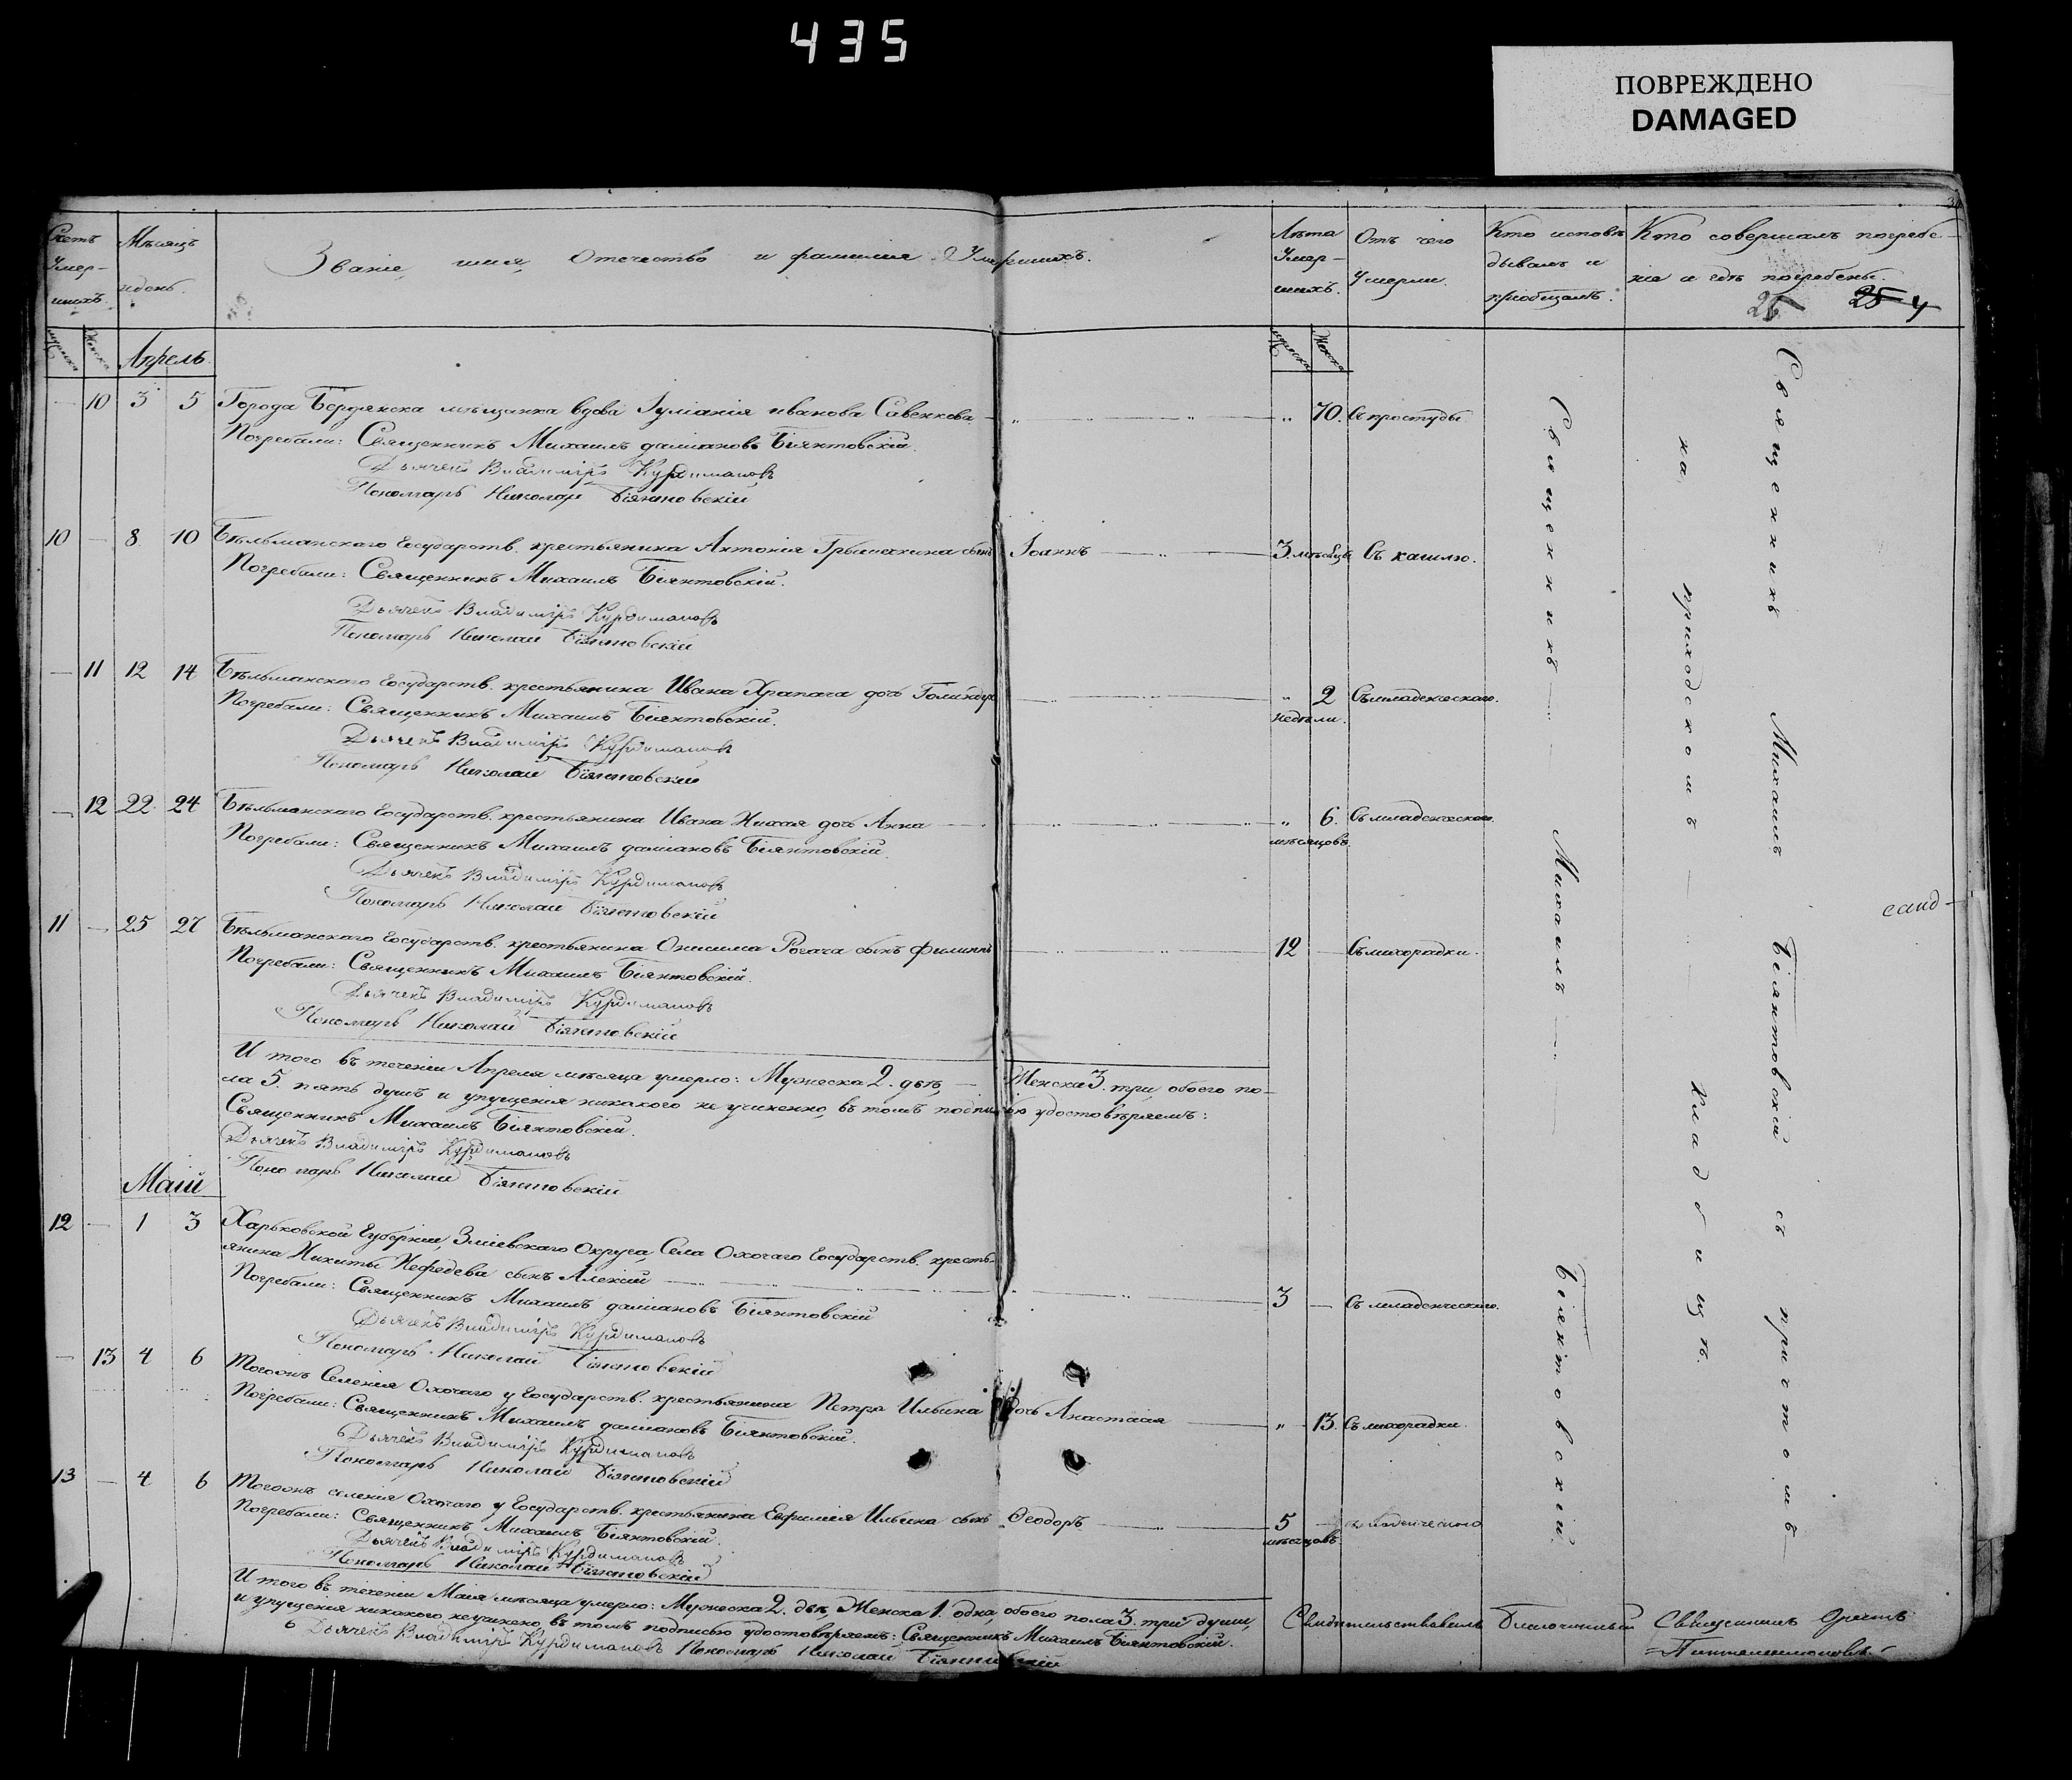 435
ПОВРЕЖДЕНО
DAMAGED
Счетъ Умер-шихъ.
Мѣсяцъ и день.
Званіе, имя, Отечество и фамилія Умершихъ.
Лѣта Умер-шихъ.
Отъ чего Умерли.
Кто исповѣдывалъ и пріобщалъ.
Кто совершалъ погребеніе и гдѣ погребены.
26 25
Апрель
10 3 5 Города Бердянска мѣщанка вдова Іуліанія иванова Савенкова 70. Съ простуды
Погребали: Священникъ Михаилъ даміановъ Біянтовскій.
Дьячекъ Владиміръ Курдимановъ
Пономарь Николай Біянтовскій
10 8 10 Бѣльманскаго Государств. крестьянина Антонія Грышанина сынъ Іоаннъ 3. мѣсяцы Съ кашлю.
Погребали: Священникъ Михаилъ Біянтовскій.
Дьячекъ Владиміръ Курдимановъ
Пономарь Николай Біянтовскій
11 12 14 Бѣльманскаго Государств. крестьянина Ивана Храпача дочь 2 недѣли. Съ младенческаго.
Погребали: Священникъ Михаилъ Біянтовскій.
Дьячекъ Владиміръ Курдимановъ
Пономарь Николай Біянтовскій
12 22 24 Бѣльманскаго Государств. крестьянина Ивана дочь Анна 6. мѣсяцовъ Съ младенческаго.
Погребали: Священникъ Михаилъ даміановъ Біянтовскій.
Дьячекъ Владиміръ Курдимановъ
Пономарь Николай Біянтовскій
11 25 27 Бѣльманскаго Государств. крестьянина Онисима Рогача сынъ Филиппъ 12 Съ лихорадки.
Погребали: Священникъ Михаилъ Біянтовскій.
Дьячекъ Владиміръ Курдимановъ
Пономарь Николай Біянтовскій
И того въ теченіи Апреля мѣсяца умерло: Мужеска 2. двѣ, Женска 3. три, обоего по-
ла 5. пять душъ и упущенія никакого не учинено, въ томъ подписью удостовѣряемъ:
Священникъ Михаилъ Біянтовскій.
Дьячекъ Владиміръ Курдимановъ
Пономарь Николай Біянтовскій
Маій
12 1 3 Харьковской Губерніи, Зміевскаго Округа, Села Охочаго Государств. кресть-
янина Никиты Нефедева сынъ Алексій 3 Съ младенческаго.
Погребали: Священникъ Михаилъ даміановъ Біянтовскій
Дьячекъ Владиміръ Курдимановъ
Пономарь Николай Біянтовскій
13 4 6 Тогоонъ Селенія Охочаго у Государств. крестьянина Петра Ильина дочь Анастасія 13. Съ лихорадки.
Погребали: Священникъ Михаилъ даміановъ Біянтовскій.
Дьячекъ Владиміръ Курдимановъ
Пономарь Николай Біянтовскій
13 4 6 Тогоонъ селенія Охочаго у Государств. крестьянина Евфимія Ильина сынъ Ѳеодоръ 5 мѣсяцовъ младенческаго
Погребали: Священникъ Михаилъ Біянтовскій.
Дьячекъ Владиміръ Курдимановъ
Пономарь Николай Біянтовскій
И того въ теченіи Маія мѣсяца умерло: Мужеска 2. двѣ, Женска 1. одна, обоего пола 3. три души,
и упущенія никакого не учинено, въ томъ подписью удостовѣряемъ: Священникъ Михаилъ Біянтовскій.
Дьячекъ Владиміръ Курдимановъ Пономарь Николай Біянтовскій
Священникъ Михаилъ Біянтовскій
Священникъ Михаилъ Біянтовскій съ причтомъ
на приходскомъ кладбищѣ.
Свидѣтельствовалъ Благочинный Священникъ